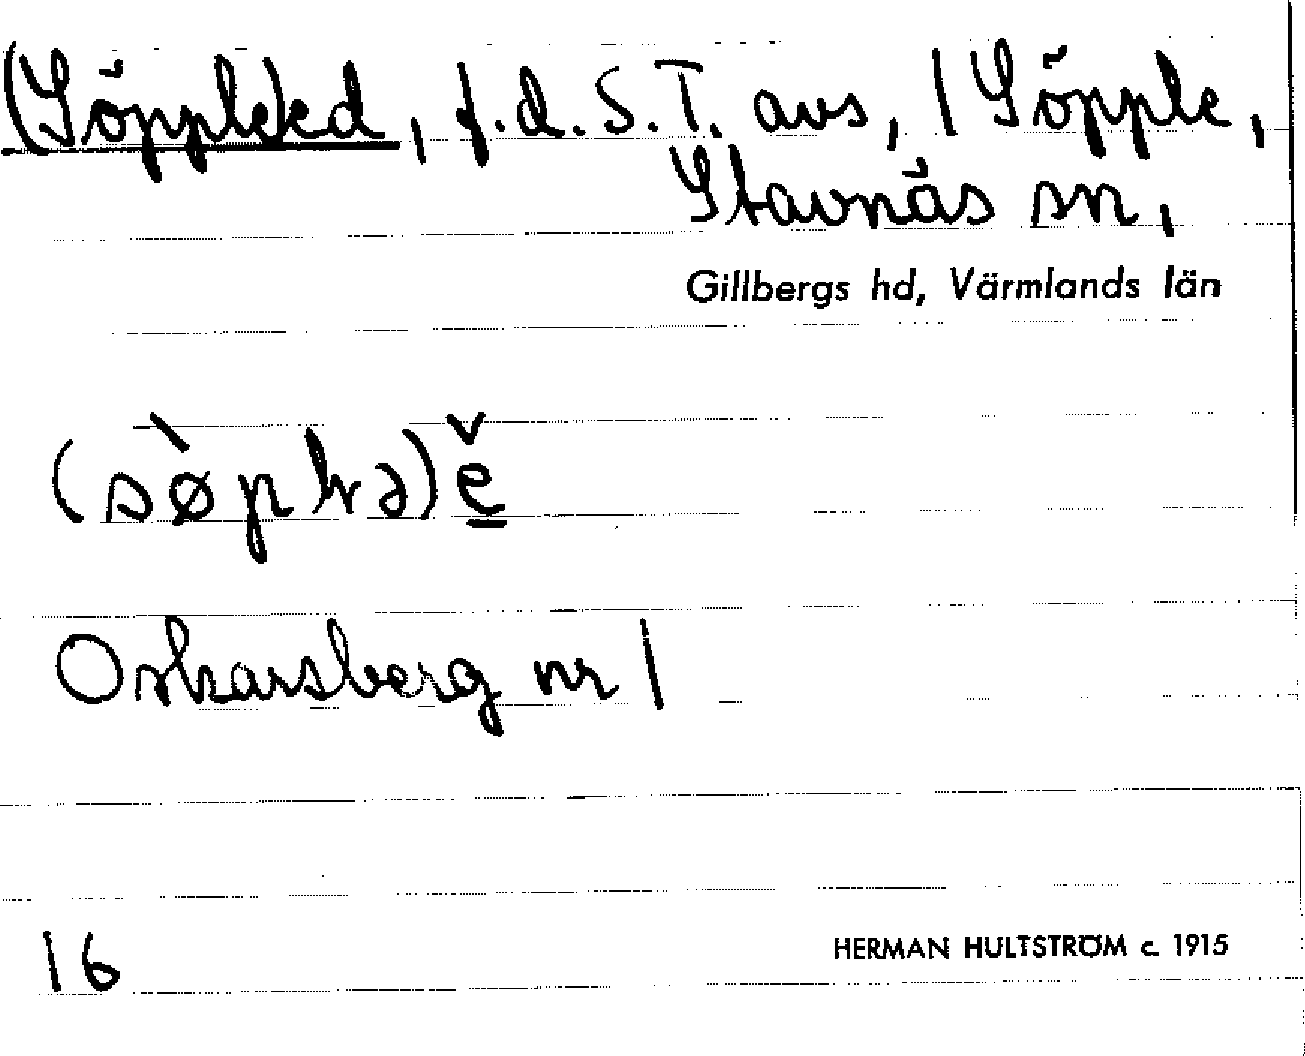 (Söpple)ed, f.d. S.T. avs, 1 Söpple,
Stavnäs sn,
Gillbergs hd, Värmlands län
(sø̀plvə)ě
Oskarsberg nr 1
16
HERMAN HULTSTRÖM c. 1915